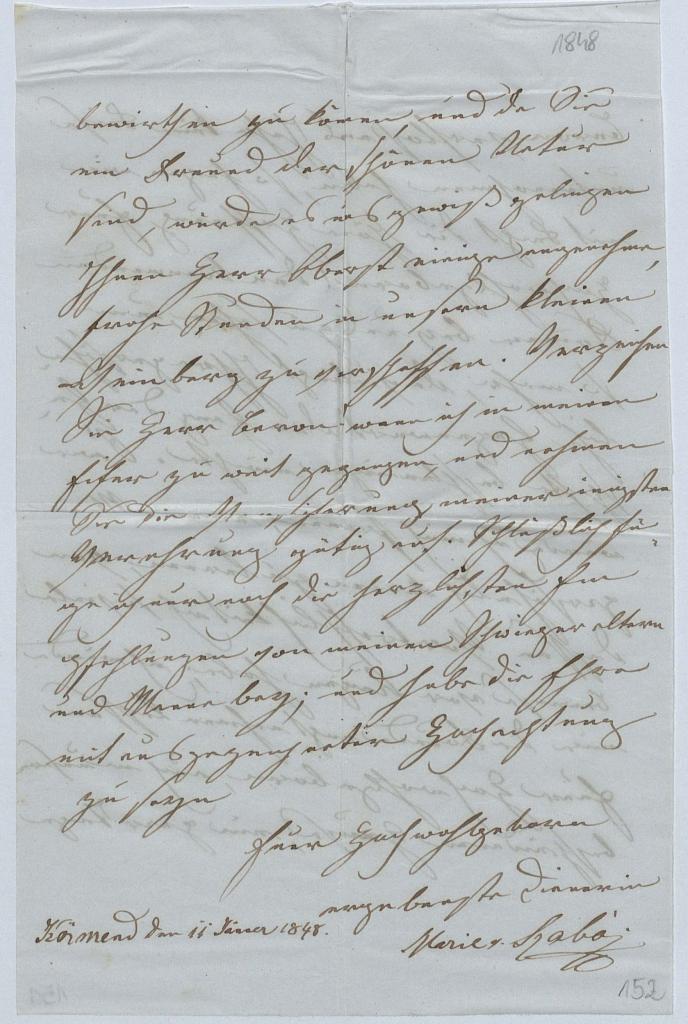 1848
bewirthen zu könen, und da Sie
ein Freund der schönen Natur
sind, würde es uns gewiß gelingen
Ihnen Herr Oberst einige angenehme,
frohe Stunden in unsern kleinen
Weinberg zu verschaffen. Verzeihen
Sie Herr Baron! wenn ich in meinem
Eifer zu weit gegangen, und nehmen
Sie die Versicherung meiner inigsten
Verehrung gütig auf. Schlüßlich fü-
ge ich nur noch die herzlichsten Em
pfehlungen von meinen Schwieger eltern
und Mann bey; und habe die Ehre
mit ausgezeichneter Hochachtung
zu seyn
Euer Hochwohlgeborn
ergebenste Dienerin
Körmend den 11 Jäner 1848.
Marie v. Szabó
152